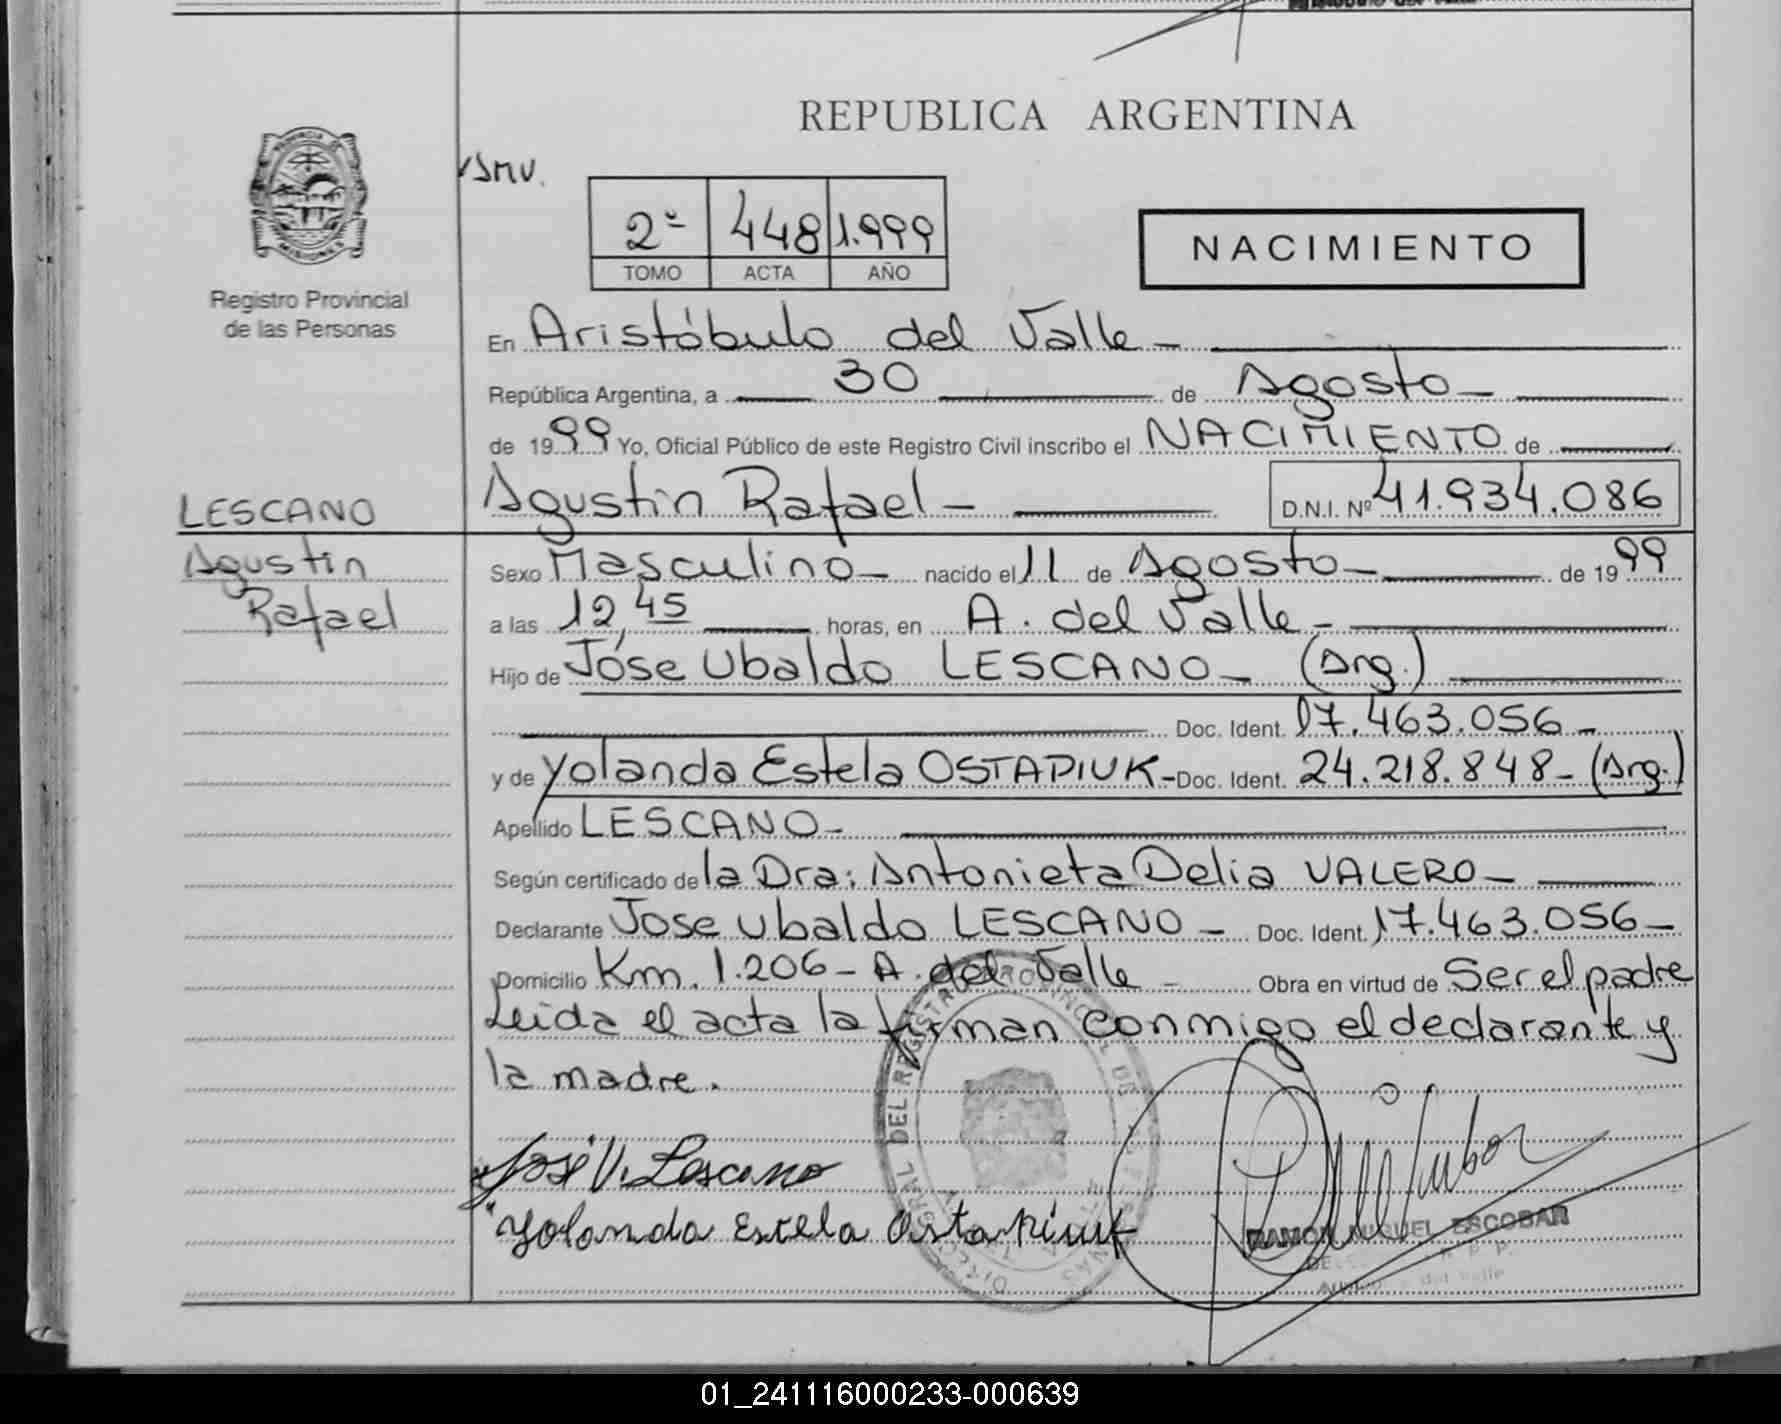 REPUBLICA ARGENTINA
SMV.
2º 448 1.999
TOMO ACTA AÑO
NACIMIENTO
PROVINCIA DE MISIONES
Registro Provincial
de las Personas
En Aristóbulo del Valle -
República Argentina, a 30 de Agosto -
de 1999 Yo, Oficial Público de este Registro Civil inscribo el NACIMIENTO de
LESCANO
Agustin Rafael - D.N.I. Nº 41.934.086
Agustin
Rafael
Sexo Masculino - nacido el 11 de Agosto - de 1999
a las 12,45 horas, en A. del Valle -
Hijo de Jóse Ubaldo LESCANO - (Arg.)
Doc. Ident. 17.463.056 -
y de Yolanda Estela OSTAPIUK - Doc. Ident. 24.218.848 - (Arg.)
Apellido LESCANO -
Según certificado de la Dra: Antonieta Delia VALERO -
Declarante Jose Ubaldo LESCANO - Doc. Ident. 17.463.056 -
Domicilio Km. 1.206 - A. del Valle - Obra en virtud de Ser el padre
Leida el acta la firman conmigo el declarante y
la madre.
José U. Lescano
Yolanda Estela Ostapiuk
RAMON MIGUEL ESCOBAR
del Valle
01_241116000233-000639